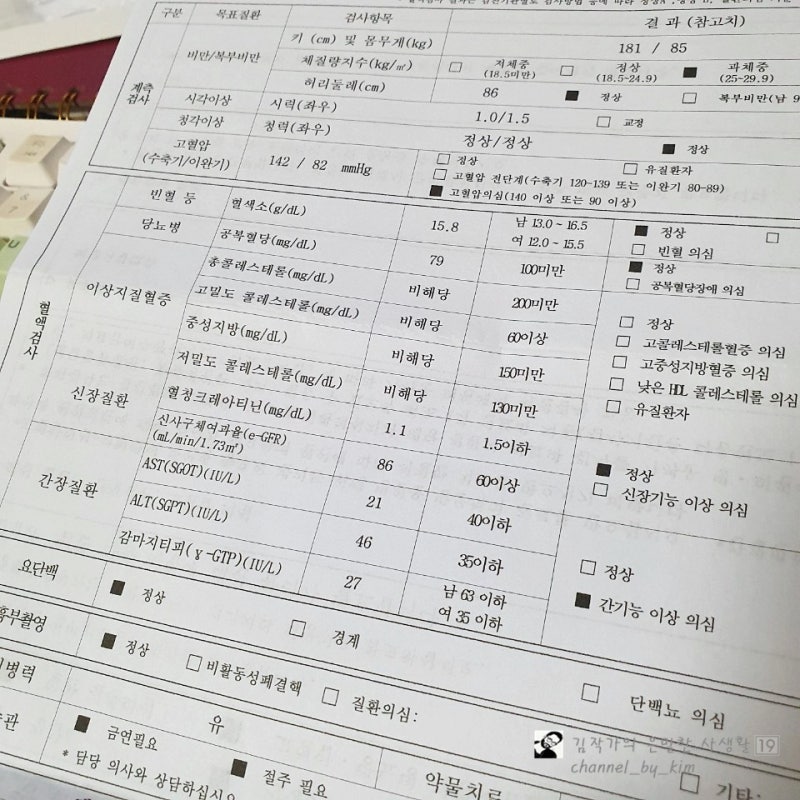 구분 목표질환 검사항목 결 과 (참고치)
계측검사 비만/복부비만 키 (cm) 및 몸무게(kg) 181 / 85
체질량지수(kg/㎡) □ 저체중 (18.5미만) □ 정상 (18.5~24.9) ■ 과체중 (25~29.9)
허리둘레(cm) 86 ■ 정상 □ 복부비만(남 9
시각이상 시력(좌우) 1.0/1.5 □ 교정
청각이상 청력(좌우) 정상/정상 ■ 정상
고혈압 (수축기/이완기) 142 / 82 mmHg □ 정상 □ 유질환자
□ 고혈압 전단계(수축기 120-139 또는 이완기 80-89)
■ 고혈압의심(140 이상 또는 90 이상)
혈액검사 빈혈 등 혈색소(g/dL) 15.8 남 13.0 ~ 16.5 여 12.0 ~ 15.5 ■ 정상 □ 빈혈 의심 □
당뇨병 공복혈당(mg/dL) 79 100미만 ■ 정상 □ 공복혈당장애 의심
이상지질혈증 총콜레스테롤(mg/dL) 비해당 200미만 □ 정상
고밀도 콜레스테롤(mg/dL) 비해당 60이상 □ 고콜레스테롤혈증 의심
중성지방(mg/dL) 비해당 150미만 □ 고중성지방혈증 의심
저밀도 콜레스테롤(mg/dL) 비해당 130미만 □ 낮은 HDL 콜레스테롤 의심
□ 유질환자
신장질환 혈청크레아티닌(mg/dL) 1.1 1.5이하 ■ 정상
신사구체여과율(e-GFR) (mL/min/1.73㎡) 86 60이상 □ 신장기능 이상 의심
간장질환 AST(SGOT)(IU/L) 21 40이하
ALT(SGPT)(IU/L) 46 35이하 □ 정상
감마지티피(γ-GTP)(IU/L) 27 남 63 이하 여 35 이하 ■ 간기능 이상 의심
요단백 ■ 정상 □ 경계 □ 단백뇨 의심
흉부촬영 ■ 정상 □ 비활동성폐결핵 □ 질환의심: □ 기타:
병력 유 약물치료
관 ■ 금연필요 ■ 절주 필요
* 담당 의사와 상담하십시오
김작가의 은밀한 사생활 19
channel_by_kim